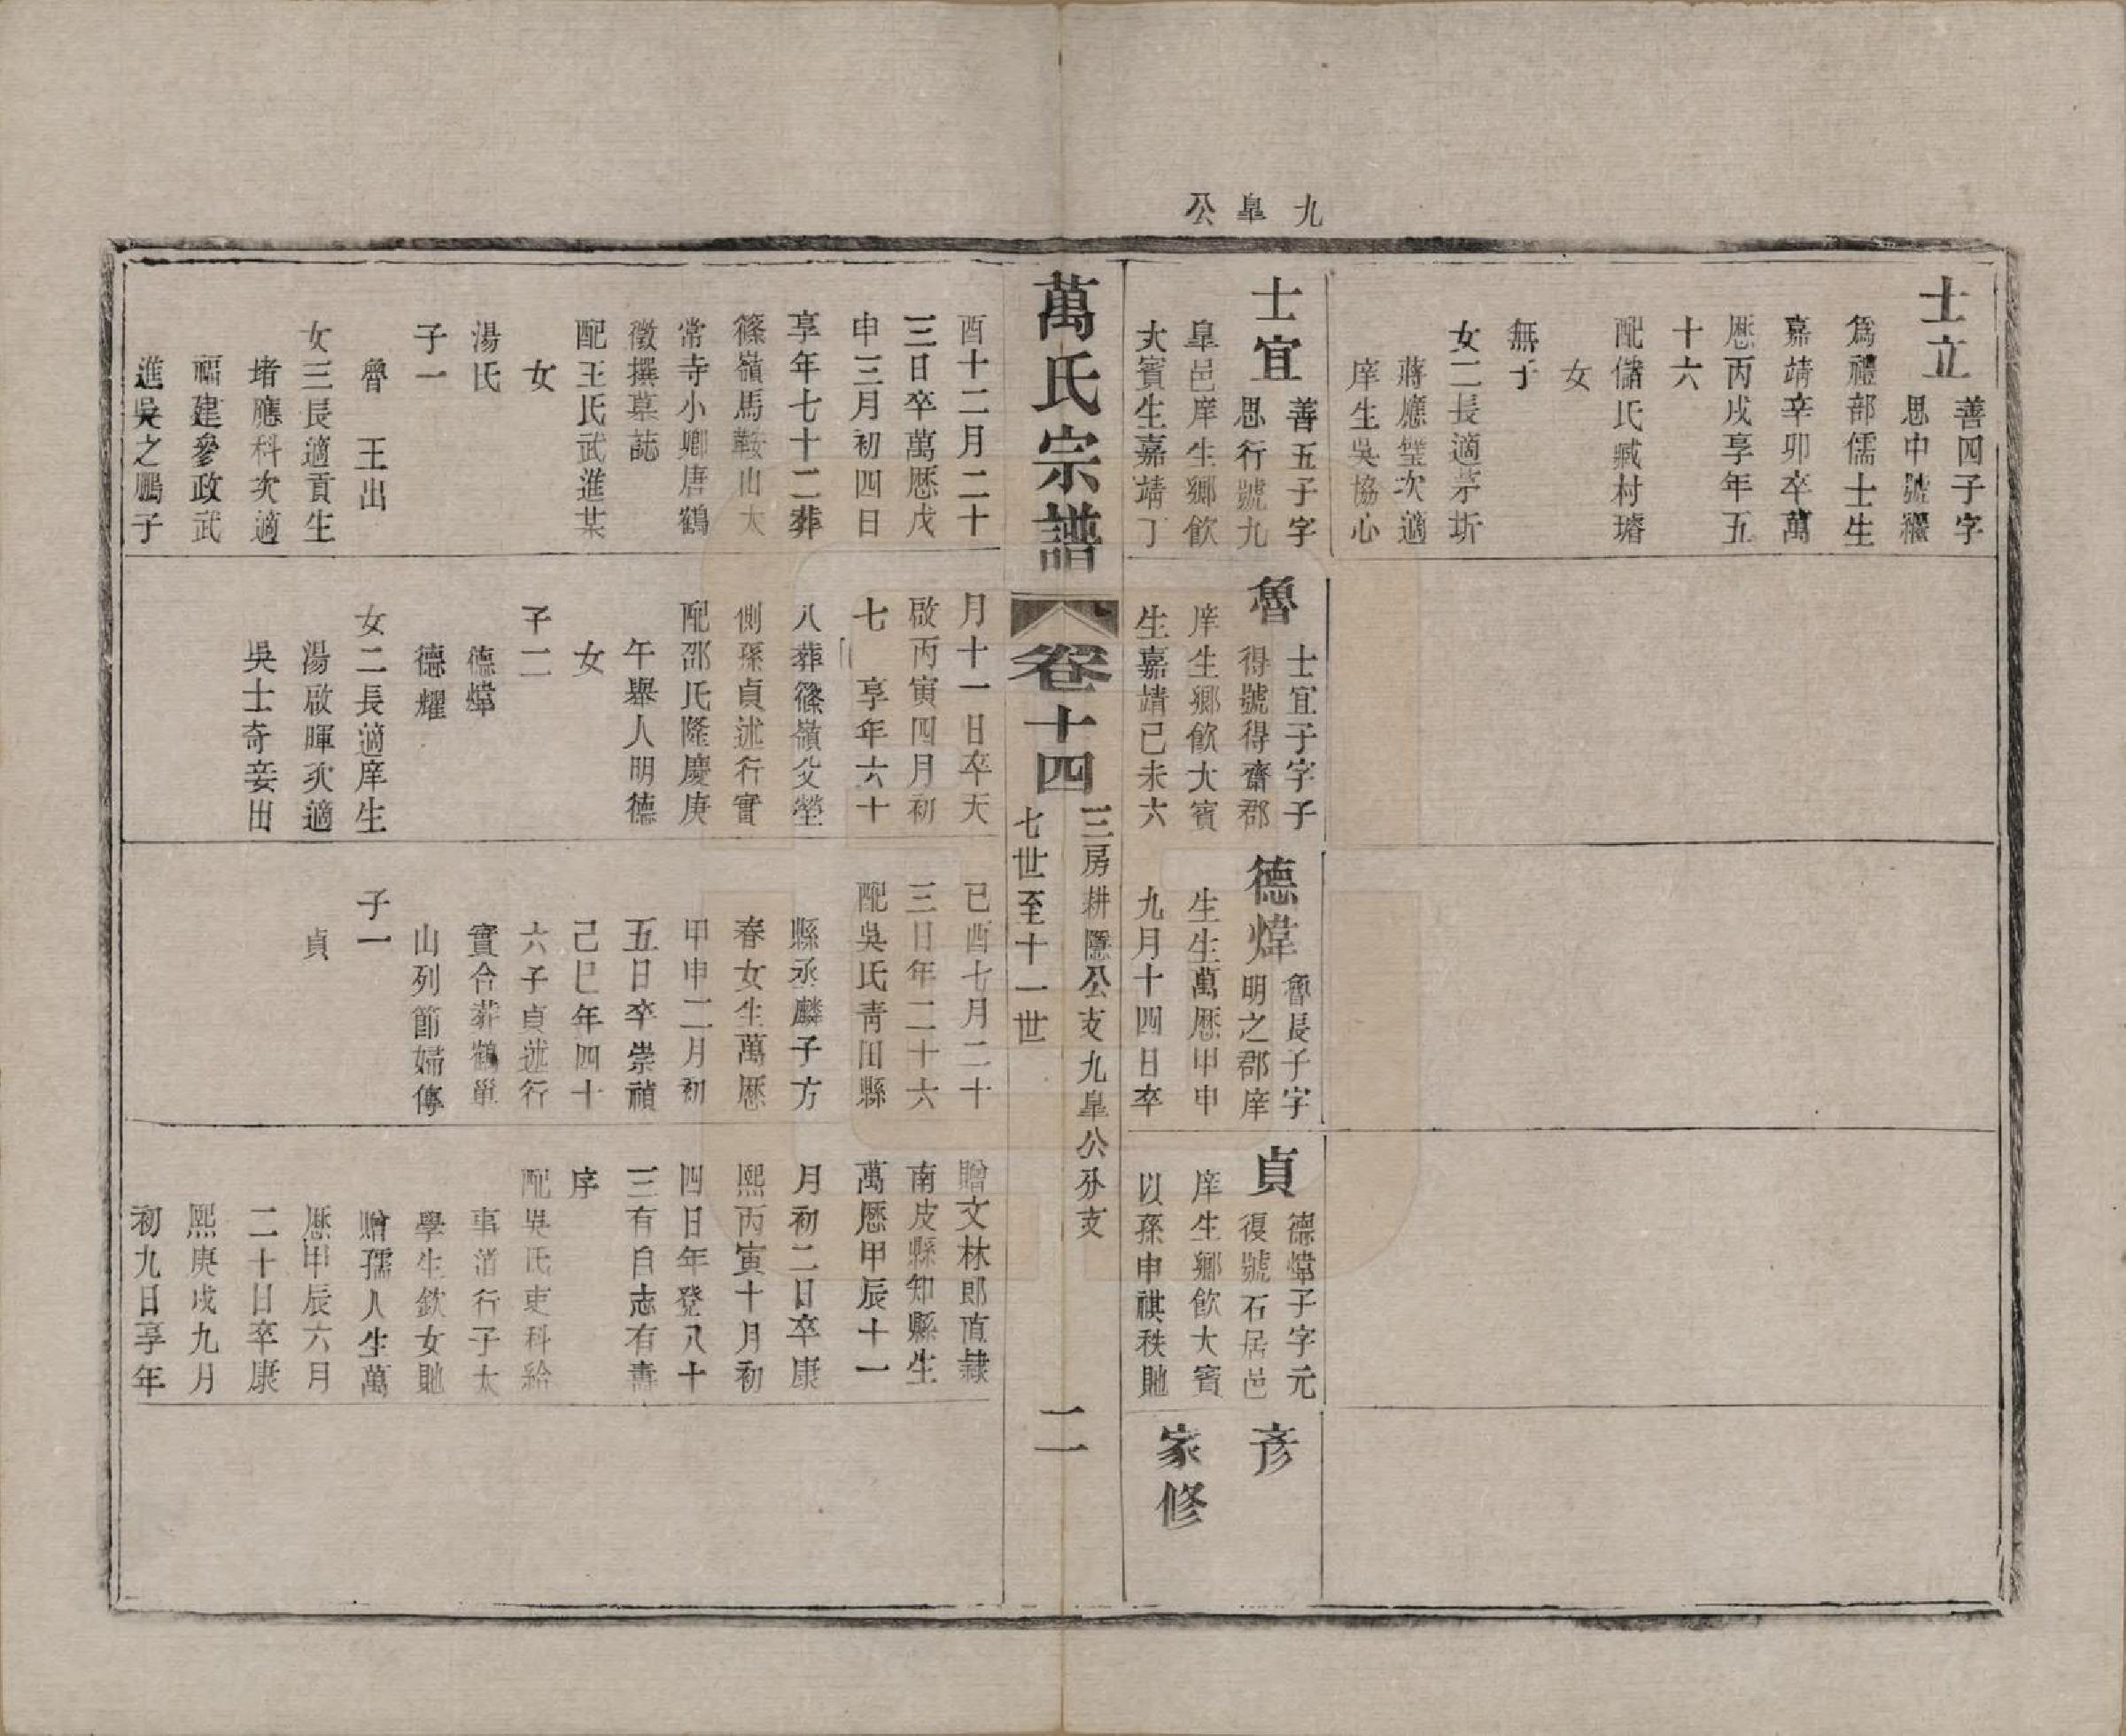 九皐公
士立
善四子字
思中號繼
爲禮部儒士生
嘉靖辛卯卒萬
厯丙戌享年五
十六
配儲氏臧村璿
女
無子
女二長適茅圻
蔣應瑩次適
庠生吳協心
士宜
善五子字
思行號九
皐邑庠生鄉飲
大賓生嘉靖丁
魯
士宜子字子
得號得齋郡
庠生鄉飲大賓
生嘉靖已未六
德煒
魯長子字
明之郡庠
生生萬厯甲申
九月十四日卒
貞
德煒子字元
復號石居邑
庠生鄉飲大賓
以孫申祺秩貤
彥
家修
萬氏宗譜
卷十四
三房耕隱公支九皐公分支
七世至十一世
二
酉十二月二十
三日卒萬厯戊
申三月初四日
享年七十二葬
篠嶺馬鞍山太
常寺小卿唐鶴
徵撰墓誌
配王氏武進某
女
湯氏
子一
魯 王出
女三長適貢生
堵應科次適
福建參政武
進吳之鵬子
月十一日卒天
啟丙寅四月初
七 享年六十
八葬篠嶺父塋
側孫貞述行實
配邵氏隆慶庚
午舉人明德
女
子二
德煒
德耀
女二長適庠生
湯啟暉次適
吳士奇妾出
已酉七月二十
三日年二十六
配吳氏靑田縣
縣丞麟子方
春女生萬厯
甲申二月初
五日卒崇禎
己巳年四十
六子貞述行
實合葬鶴巢
山列節婦傳
子一
貞
贈文林郎直隸
南皮縣知縣生
萬厯甲辰十一
月初二日卒康
熙丙寅十月初
四日年登八十
三有自志有壽
序
配吳氏吏科給
事淯行子太
學生欽女貤
贈孺人生萬
厯甲辰六月
二十日卒康
熙庚戌九月
初九日享年